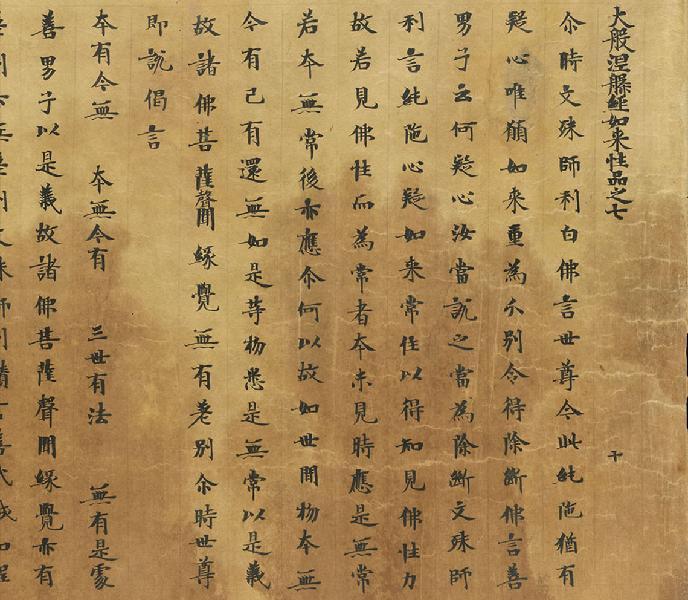 大般涅槃經如来性品之七 十
尒時文殊師利白佛言世尊今此純陁猶有
疑心唯願如来重為分别令得除断佛言善
男子云何疑心汝當說之當為除断文殊師
利言純陁心疑如来常住以得知見佛性力
故若見佛性而為常者本未見時應是無常
若本無常後亦應尒何以故如世間物本無
今有已有還無如是等物悉是無常以是義
故諸佛菩薩聲聞緣覺無有差别尒時世尊
即說偈言
本有今無 本無今有 三世有法 無有是處
善男子以是義故諸佛菩薩聲聞緣覺亦有